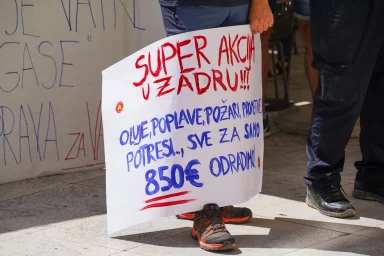 JE VATRE
GASE
SUPER AKCIJA
U ZADRU!!!
OLUJE, POPLAVE, POŽARI,
POTRESI..., SVE ZA SAMO
850€ ODRADIMO!
ZA